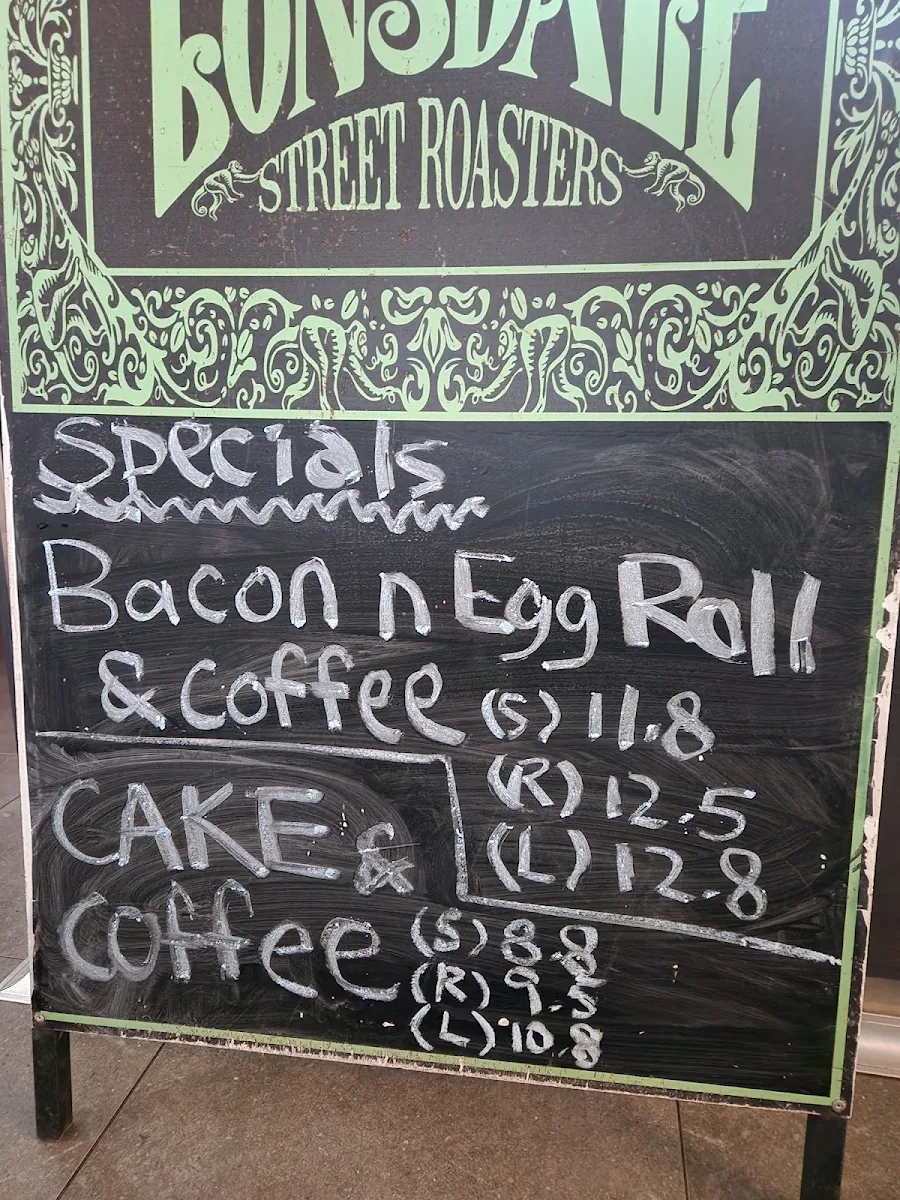 LONSDALE
STREET ROASTERS
Specials
Bacon n Egg Roll
& Coffee (S) 11.8
(R) 12.5
(L) 12.8
CAKE &
Coffee (S) 8.8
(R) 9.5
(L) 10.8